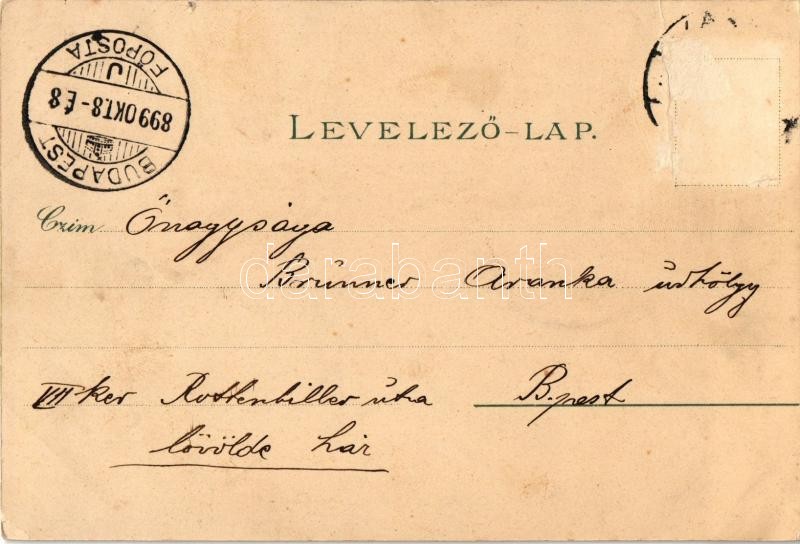 BUDAPEST
899 OKT. 8 - É 8
J
FŐPOSTA
LEVELEZŐ-LAP.
Czim Őnagysága
Brünner Aranka úrhölgy
darabanth
VII ker Rottenbiller útza B.pest
lövölde ház